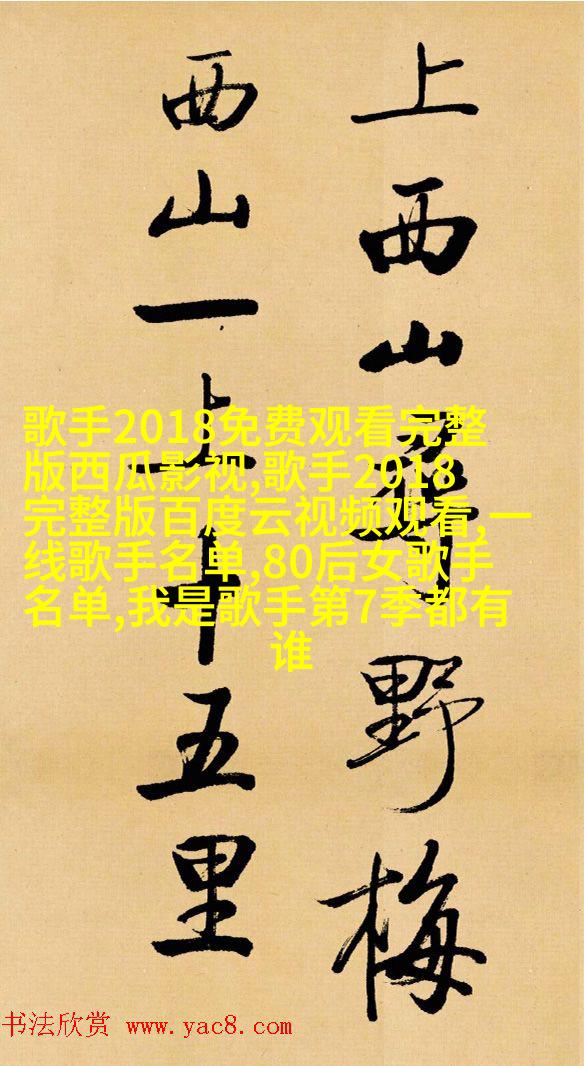 上西山尋野梅
西山一上十五里
歌手2018免费观看完整
版西瓜影视,歌手2018
完整版百度云视频观看,一
线歌手名单,80后女歌手
名单,我是歌手第7季都有
谁
书法欣赏 www.yac8.com